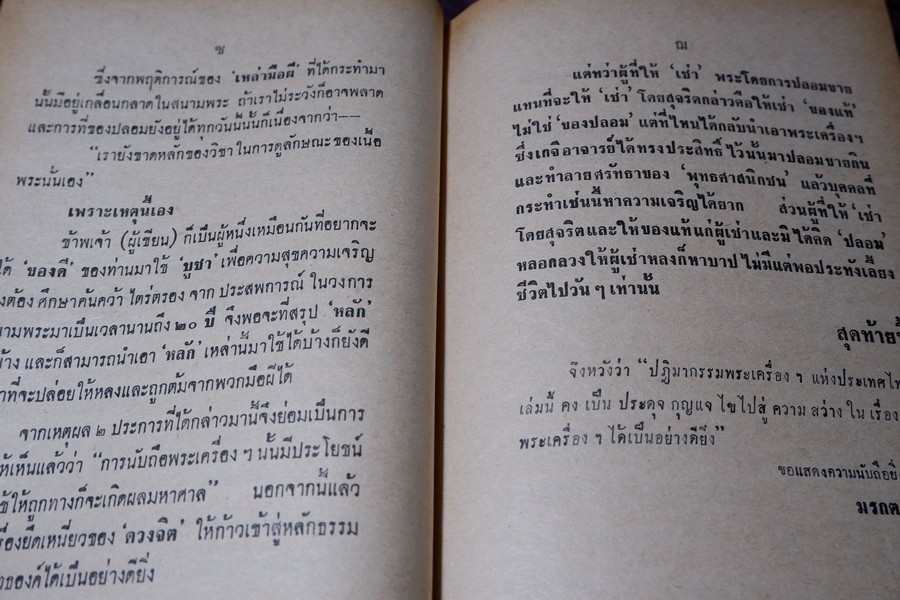 ซ
ซึ่งจากพฤติการณ์ของ ‘เหล่ามือผี’ ที่ได้กระทำมา
นั้นมีอยู่เกลื่อนกลาดในสนามพระ ถ้าเราไม่ระวังก็อาจพลาด
และการที่ของปลอมยังอยู่ได้ทุกวันนี้นั้นก็เนื่องจากว่า--
“เรายังขาดหลักของวิชาในการดูลักษณะของเนื้อ
พระนั่นเอง”
เพราะเหตุนี้เอง
ข้าพเจ้า (ผู้เขียน) ก็เป็นผู้หนึ่งเหมือนกันที่อยากจะ
ได้ ‘ของดี’ ของท่านมาใช้ ‘บูชา’ เพื่อความสุขความเจริญ
งต้อง ศึกษาค้นคว้า ไตร่ตรอง จาก ประสพการณ์ ในวงการ
นามพระมาเป็นเวลานานถึง ๒๐ ปี จึงพอจะที่สรุป ‘หลัก’
บ้าง และก็สามารถนำเอา ‘หลัก’ เหล่านั้นมาใช้ได้บ้างก็ยังดี
าที่จะปล่อยให้หลงและถูกต้มจากพวกมือผีได้
จากเหตุผล ๒ ประการที่ได้กล่าวมานี้จึงย่อมเป็นการ
ห้เห็นแล้วว่า “การนับถือพระเครื่อง ๆ นั้นมีประโยชน์
ช้ให้ถูกทางก็จะเกิดผลมหาศาล” นอกจากนี้แล้ว
รื่องยึดเหนี่ยวของ ‘ดวงจิต’ ให้ก้าวเข้าสู่หลักธรรม
องค์ได้เป็นอย่างดียิ่ง
ฌ
แต่ทว่าผู้ที่ให้ ‘เช่า’ พระโดยการปลอมขาย
แทนที่จะให้ ‘เช่า’ โดยสุจริตกล่าวคือให้เช่า ‘ของแท้’
ไม่ใช่ ‘ของปลอม’ แต่ที่ไหนได้กลับนำเอาพระเครื่องฯ
ซึ่งเกจิอาจารย์ได้ทรงประสิทธิ์ไว้นั้นมาปลอมขายกิน
และทำลายศรัทธาของ ‘พุทธศาสนิกชน’ แล้วบุคคลที่
กระทำเช่นนี้หาความเจริญได้ยาก ส่วนผู้ที่ให้ ‘เช่า
โดยสุจริตและให้ของแท้แก่ผู้เช่าและมิได้คิด ‘ปลอม’
หลอกลวงให้ผู้เช่าหลงก็หาบาปไม่มีแต่พอประทังเลี้ยง
ชีวิตไปวัน ๆ เท่านั้น
สุดท้าย
จึงหวังว่า “ปฏิมากรรมพระเครื่อง ๆ แห่งประเทศไท
เล่มนี้ คง เป็น ประดุจ กุญแจ ไขไปสู่ ความ สว่าง ใน เรื่อง
พระเครื่อง ๆ ได้เป็นอย่างดียิ่ง”
ขอแสดงความนับถือ
มรกต